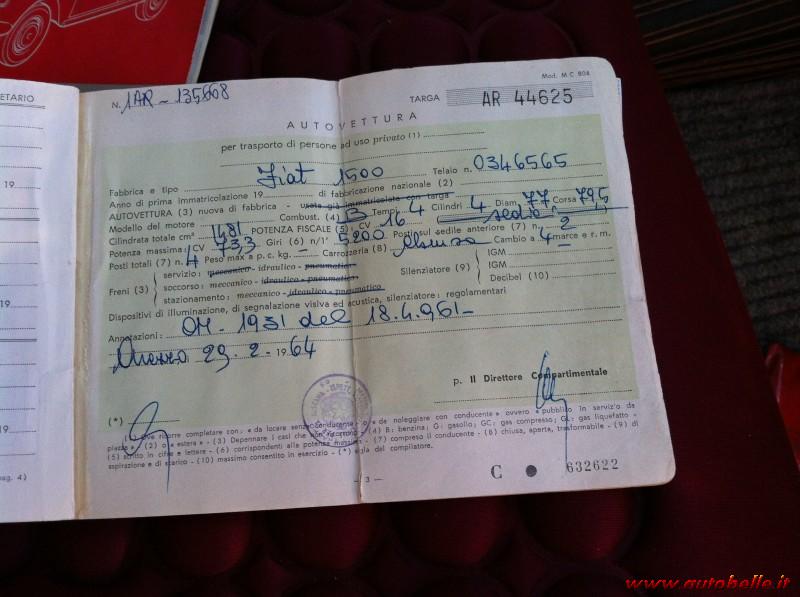 ETARIO
19
19
19
ag. 4)
Mod. M C 804
N. 1AR - 135608
TARGA AR 44625
AUTOVETTURA
per trasporto di persone ad uso privato (1)
Fabbrica e tipo Fiat 1500 Telaio n. 0346565
Anno di prima immatricolazione 19 di fabbricazione nazionale (2)
AUTOVETTURA (3) nuova di fabbrica - usata già immatricolata con targa
Modello del motore Combust. (4) B Tempi 4 Cilindri 4 Diam. 77 Corsa 79,5
Cilindrata totale cm³ 1481 POTENZA FISCALE (5): CV 16 sedici
Potenza massima: CV 73,3 Giri (6) n/1' 5200 Posti sul sedile anteriore (7) n. 2
Posti totali (7) n. 4 Peso max a p. c. kg. Carrozzeria (8) chiusa Cambio a 4 marce e r. m.
Freni (3) servizio: meccanico - idraulico - pneumatico
soccorso: meccanico - idraulico - pneumatico
stazionamento: meccanico - idraulico - pneumatico
Silenziatore (9) IGM
IGM
Decibel (10)
Dispositivi di illuminazione, di segnalazione visiva ed acustica, silenziatore: regolamentari
Annotazioni: OM - 1931 del 18.4.961-
Arezzo 29. 2 - 1964
p. Il Direttore Compartimentale
(*)
(1) Ove ricorre completare con: « da locare senza conducente » o « da noleggiare con conducente » ovvero « pubblico in servizio da
piazza » (2) o « estera » - (3) Depennare i casi che non ricorrono - (4) B: benzina; G: gasolio; GC: gas compresso; GL: gas liquefatto -
(5) scritto in cifre e lettere - (6) corrispondenti alla potenza massima - (7) compreso il conducente - (8) chiusa, aperta, trasformabile - (9) di
aspirazione e di scarico - (10) massimo consentito in esercizio - (*) sigla del compilatore.
C ● 632622
— 3 —
www.autobelle.it